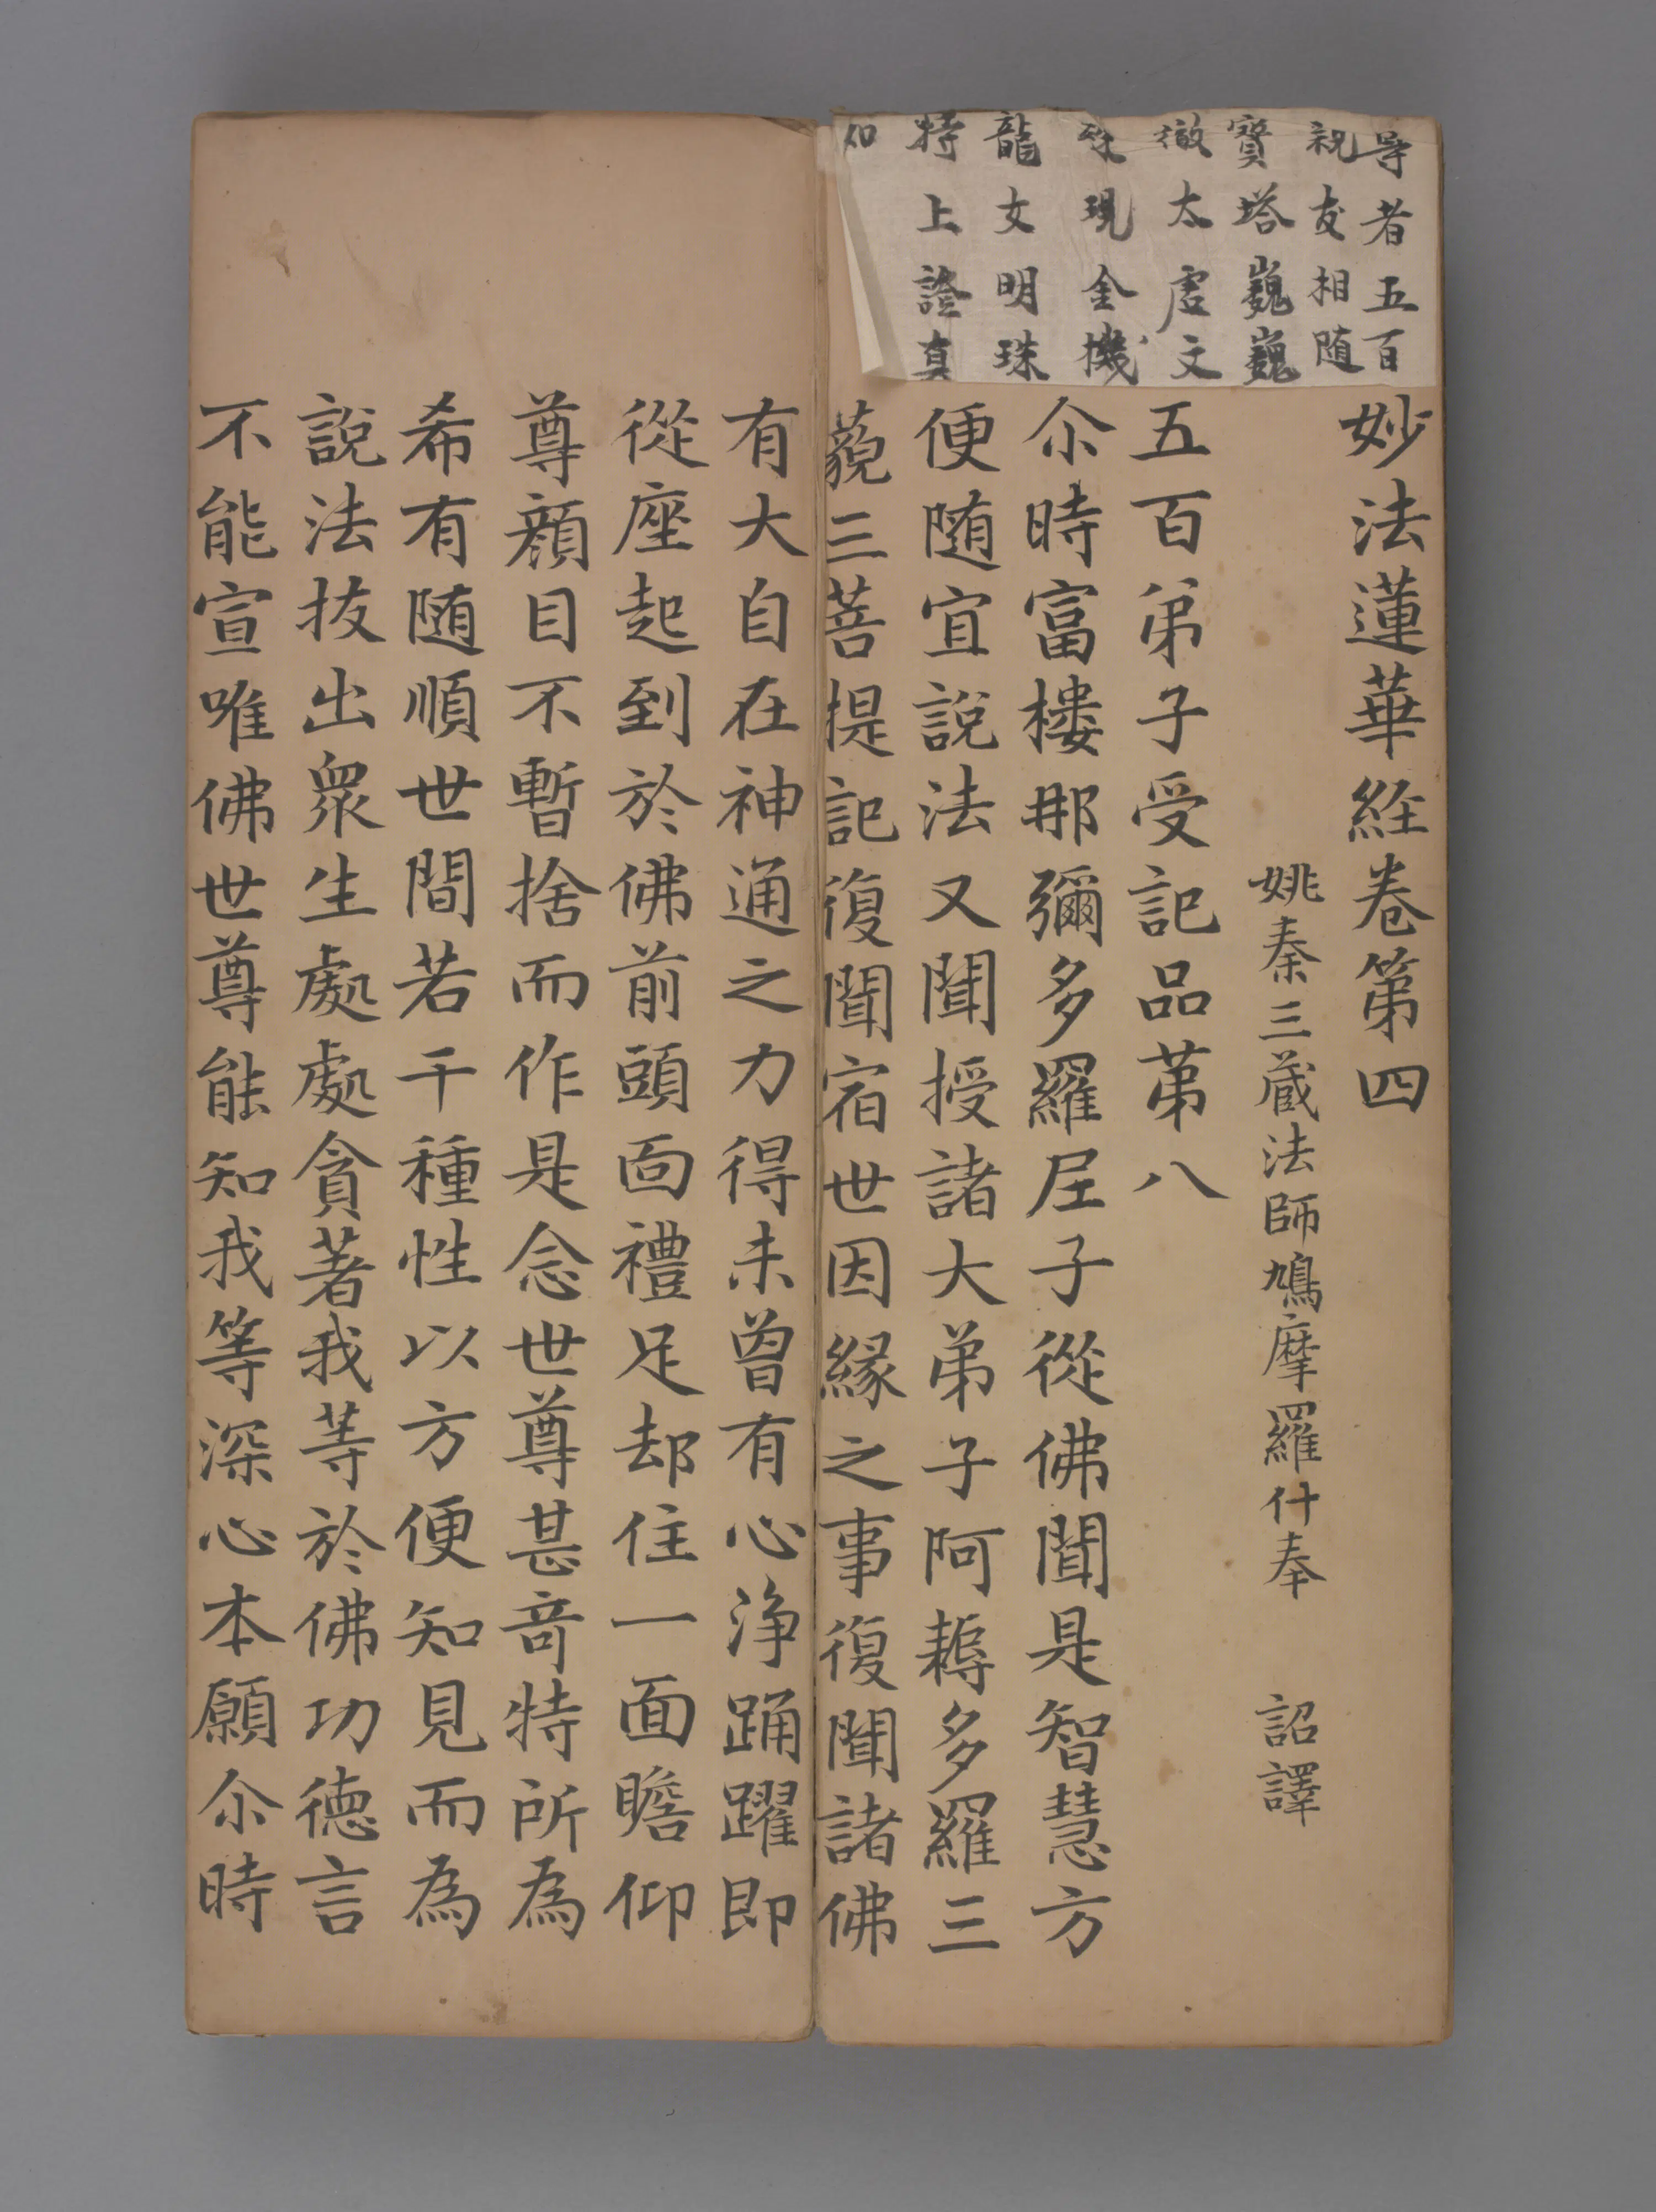 导者五百
親友相随
寳塔巍巍
徹太虚文
殊現全機
龍女明珠
持上證真
如
妙法蓮華経卷第四
姚秦三蔵法師鳩摩羅什奉 詔譯
五百弟子受記品苐八
尒時富樓那彌多羅尼子從佛聞是智慧方
便随宜說法又聞授諸大弟子阿耨多羅三
藐三菩提記復聞宿世因緣之事復聞諸佛
有大自在神通之力得未曾有心淨踊躍即
從座起到於佛前頭面禮足却住一面瞻仰
尊顔目不暫捨而作是念世尊甚竒特所為
希有随順世間若干種性以方便知見而為
說法拔出衆生處處貪著我等於佛功德言
不能宣唯佛世尊能知我等深心本願尒時